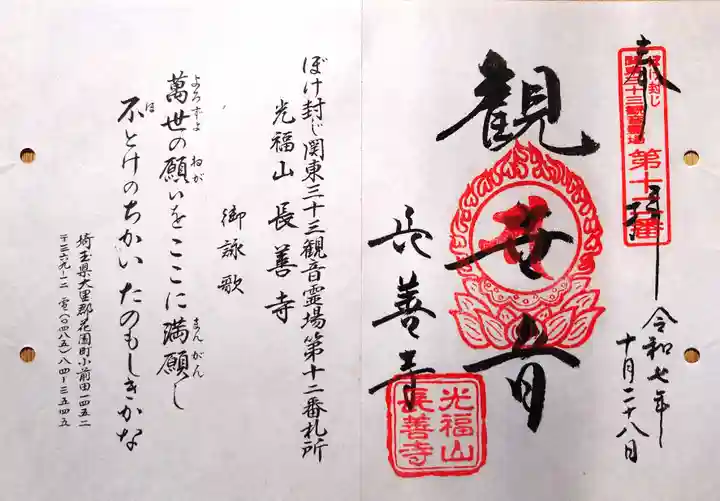 奉拝
ぼけ封じ
関東三十三観音霊場
第十二番
令和七年
十月二十八日
観世音
長善寺
光福山
長善寺
ぼけ封じ関東三十三観音霊場第十二番札所
光福山 長善寺
御詠歌
よろずよ ねが まん がん
萬世の願いをここに満願し
ほ
不とけのちかいたのもしきかな
埼玉県大里郡花園町小前田一四五二
〒三六九ー一二 電(〇四八五)八四ー三五四五